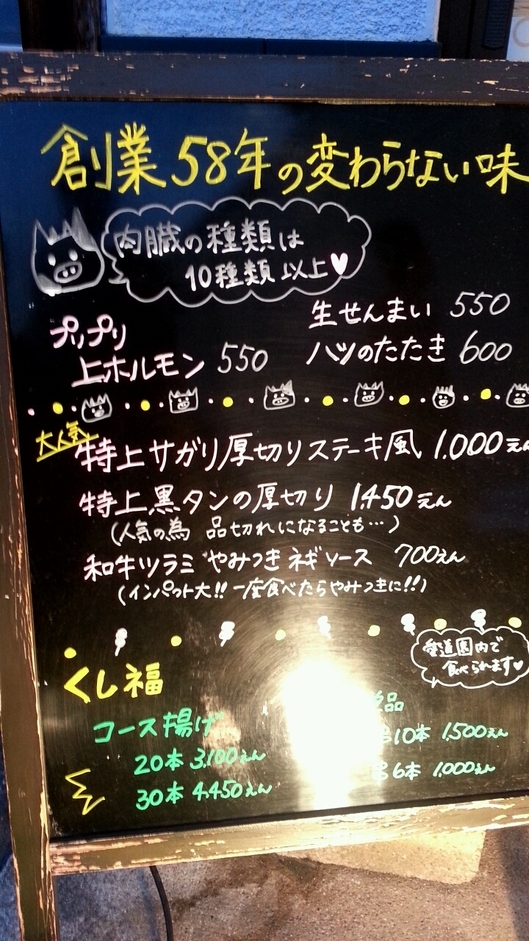 創業58年の変わらない味
内臓の種類は
10種類以上♥
プリプリ
上ホルモン 550
生せんまい 550
ハツのたたき 600
大人気
特上サガリ厚切りステーキ風 1.000えん
特上黒タンの厚切り 1.450えん
(人気の為 品切れになることも…)
和牛ツラミ やみつきネギソース 700えん
(インパクト大!! 一度食べたらやみつきに!!)
くし福
園内で
食べられます♥
コース揚げ
20本 3.100えん
30本 4.450えん
品
10本 1.500えん
6本 1.000えん